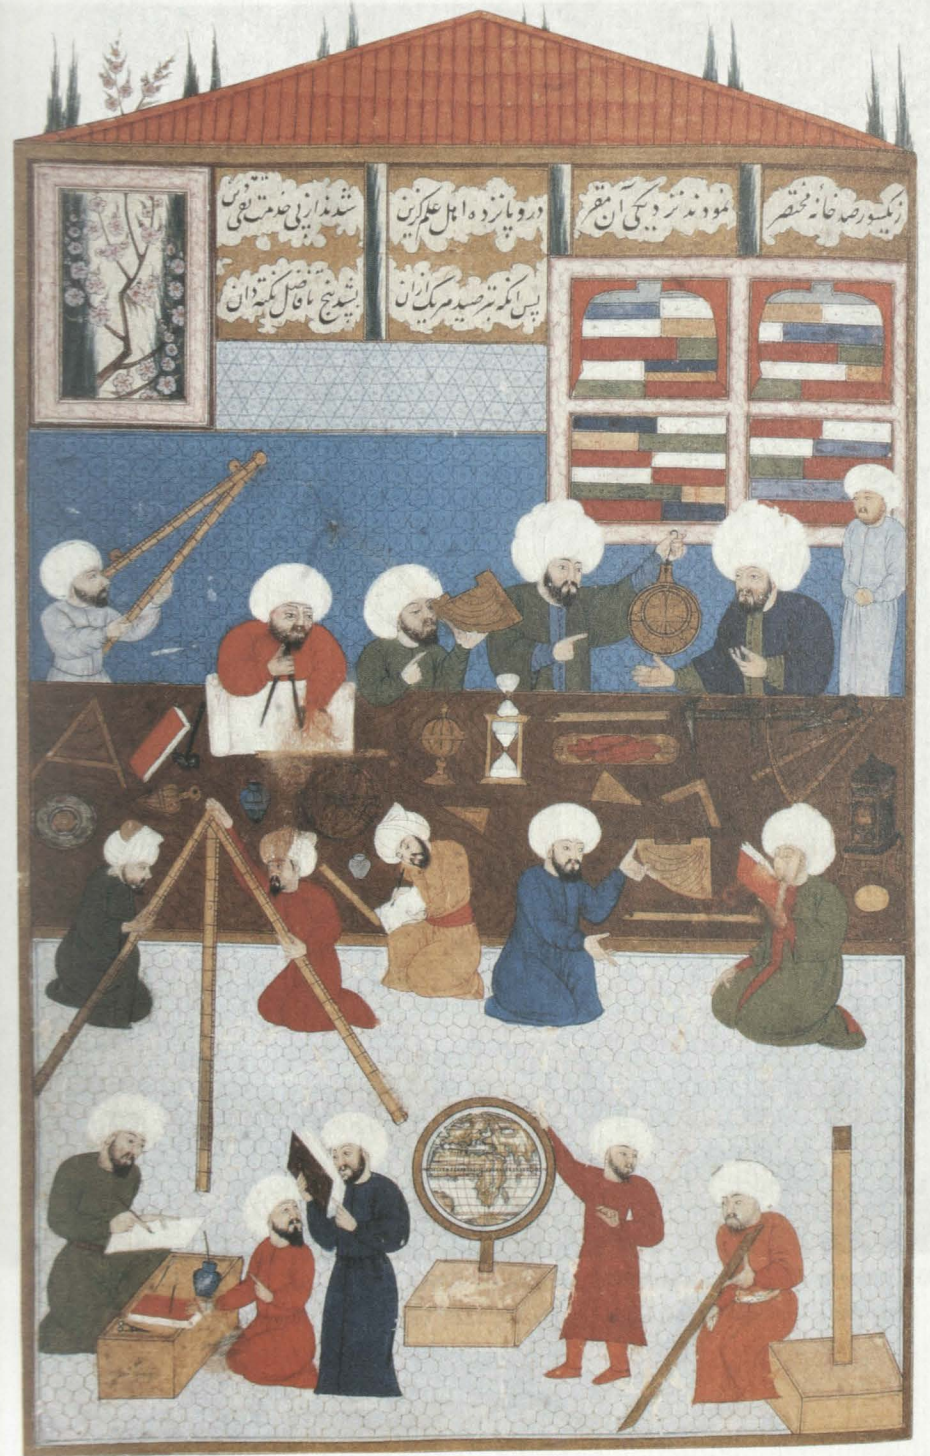 زیکسو رصد خانهٔ مختصر نمودند نزدیکی آن مقر درو پانزده اهل علم گزین شدند از پی خدمت تقی دین
پس آنکه بترصید هر یک ازان بشد پنج با فاضل نکته دان